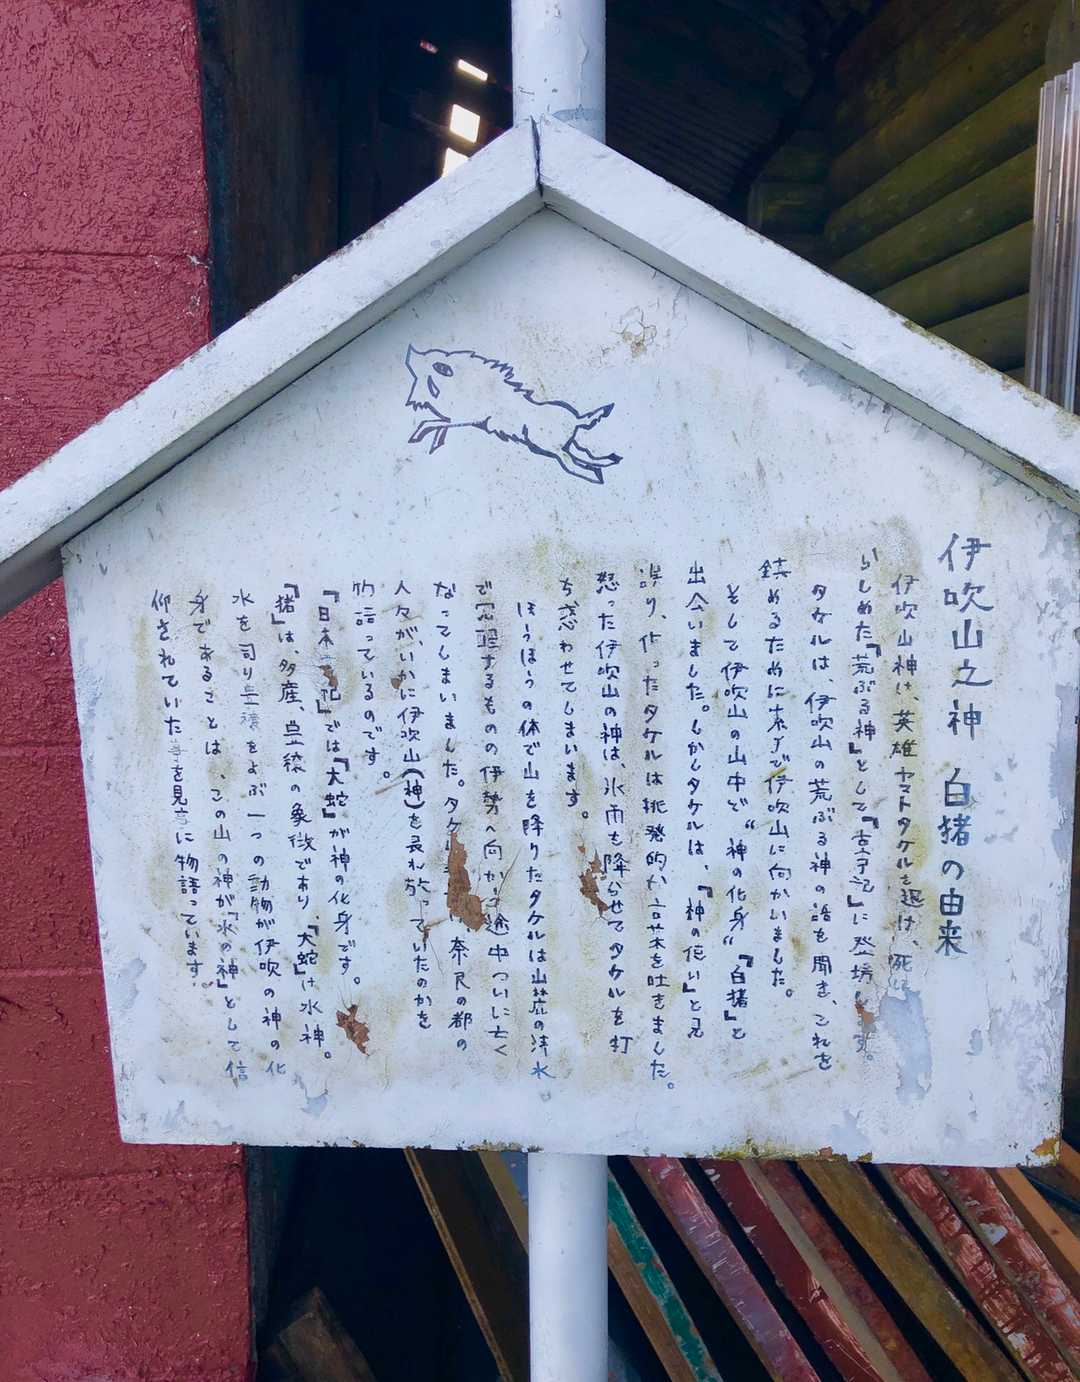 伊吹山之神 白猪の由来
伊吹山神は、英雄ヤマトタケルを退け、死に
らしめた『荒ぶる神』として『古事記』に登場します。
タケルは、伊吹山の荒ぶる神の話を聞き、これを
鎮めるために素手で伊吹山に向かいました。
そして伊吹山の山中で“神の化身”『白猪』と
出会いました。しかしタケルは、『神の使い』と見
誤り、侮ったタケルは挑発的な言葉を吐きました。
怒った伊吹山の神は、氷雨を降らせてタケルを打
ち惑わせてしまいます。
ほうほうの体で山を降りたタケルは山麓の清水
で覚醒するものの伊勢へ向かう途中ついに亡く
なってしまいました。タケ 奈良の都の
人々が、いかに伊吹山(神)を畏れ敬っていたのかを
物語っているのです。
『日本書紀』では『大蛇』が神の化身です。
『猪』は、多産、豊穣の象徴であり、『大蛇』は水神。
水を司り豊穣をよぶ一つの動物が伊吹の神の化
身であることは、この山の神が『水の神』として信
仰されていた事を見事に物語っています。